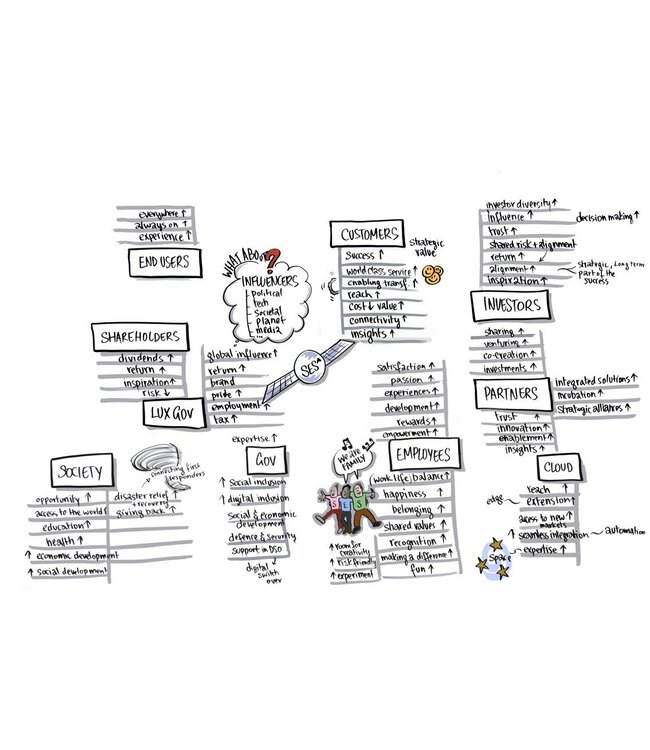 everywhere ↑
always on ↑
experience ↑
END USERS
WHAT ABOUT?
INFLUENCERS
political
tech
societal
planet
media
...
CUSTOMERS
strategic value
success ↑
world class service ↑
enabling transf. ↑
reach ↑
cost ↓ value ↑
connectivity ↑
insights ↑
investor diversity ↑
influence ↑
decision making ↑
trust ↑
shared risk + alignment
return ↑
alignment ↑
strategic, long term
part of the
success
inspiration ↑
INVESTORS
SHAREHOLDERS
dividends ↑
return ↑
inspiration ↑
risk ↓
LUX GOV
global influence ↑
return ↑
brand
pride ↑
employment ↑
tax ↑
SES
sharing ↑
venturing ↑
co-creation ↑
investments ↑
PARTNERS
integrated solutions ↑
incubation ↑
strategic alliances ↑
trust ↑
innovation ↑
enablement ↑
insights ↑
satisfaction ↑
passion ↑
experiences ↑
development ↑
rewards ↑
empowerment ↑
EMPLOYEES
work life balance ↑
happiness ↑
belonging ↑
shared values ↑
recognition ↑
making a difference ↑
fun ↑
we are
FAMILY
S E S
↑ room for
creativity
↑ risk friendly
↑ experiment
SOCIETY
connecting first
responders
opportunity ↑
access to the world ↑
education ↑
health ↑
↑ economic development
↑ social development
disaster relief
+ recovery
giving back ↑
expertise ↑
GOV
↑ social inclusion
↑ digital inclusion
social & economic
development
defence & security
support in DSO
digital
switch
over
CLOUD
reach ↑
edge
extension ↑
access to new ↑
markets
↑ seamless integration
automation
expertise ↑
space